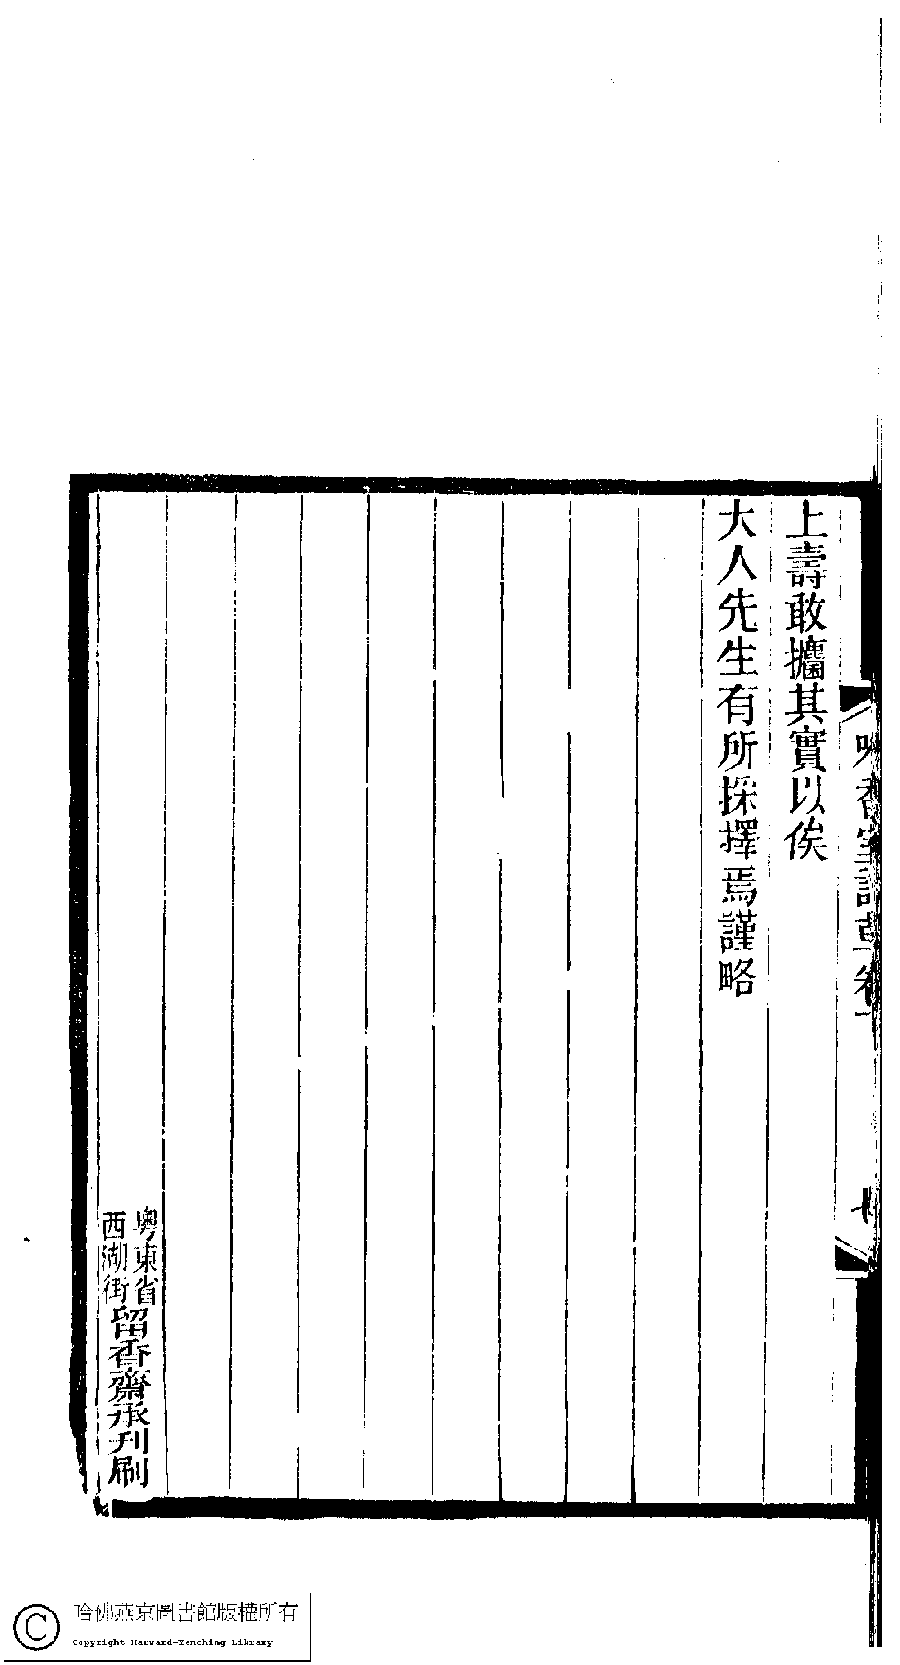 香室詩草卷
上壽敢攟其實以俟
大人先生有所採擇焉謹略
粤東省
西湖街
留香齋承刊刷
哈佛燕京圖書館版權所有
Copyright Harvard-Yenching Library